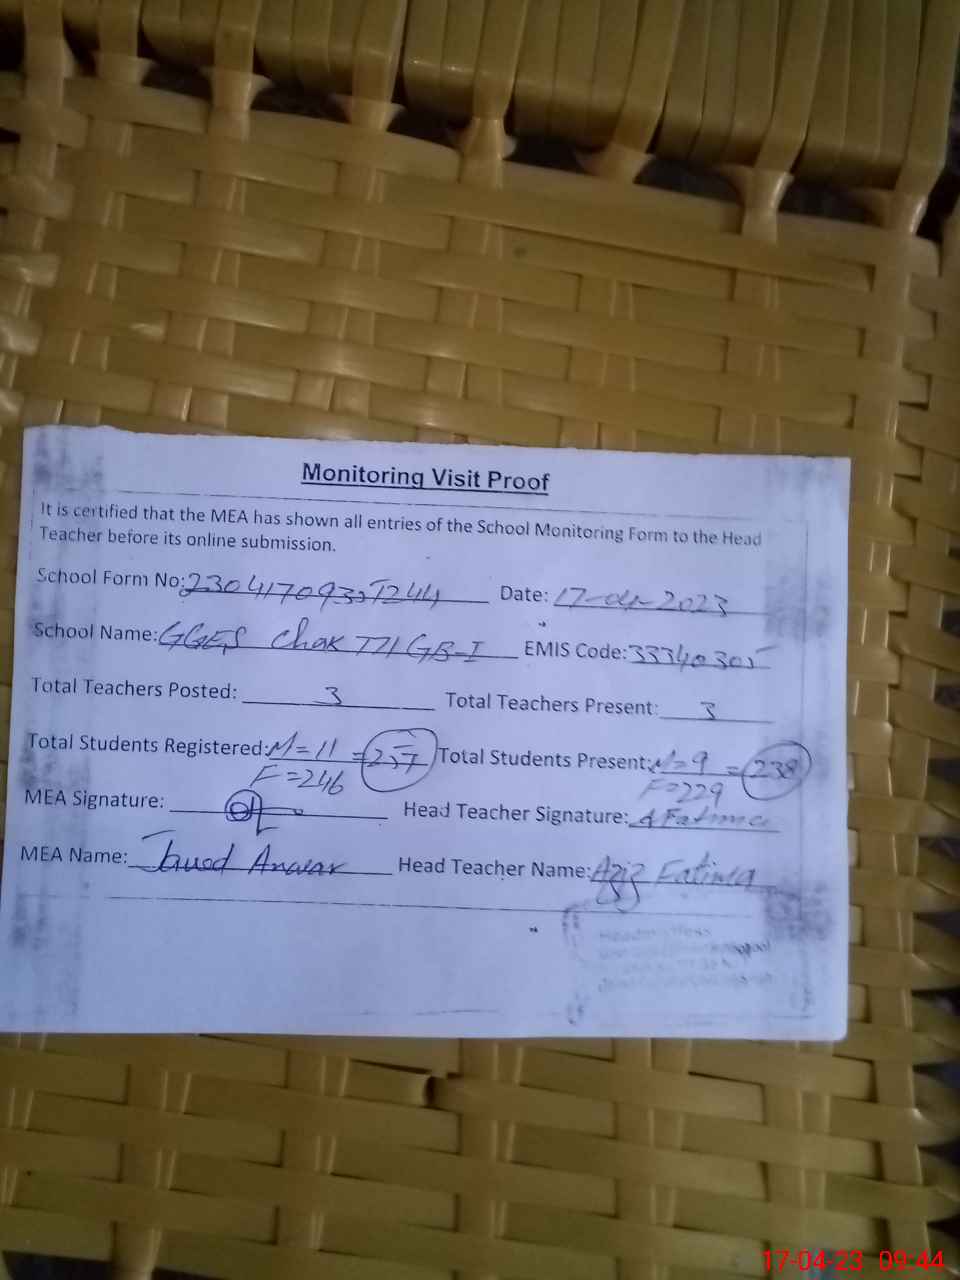 Monitoring Visit Proof
It is certified that the MEA has shown all entries of the School Monitoring Form to the Head
Teacher before its online submission.
School Form No: Date: 17-04-2023
School Name: GGES Chak 771 GB-I EMIS Code: 33340305
Total Teachers Posted: 3 Total Teachers Present: 3
Total Students Registered: M=11 =257 Total Students Present: M=9 =238
F=246 F=229
MEA Signature: Head Teacher Signature: A Fatima
MEA Name: Javed Anwar Head Teacher Name: Aziz Fatima
17-04-23 09:44